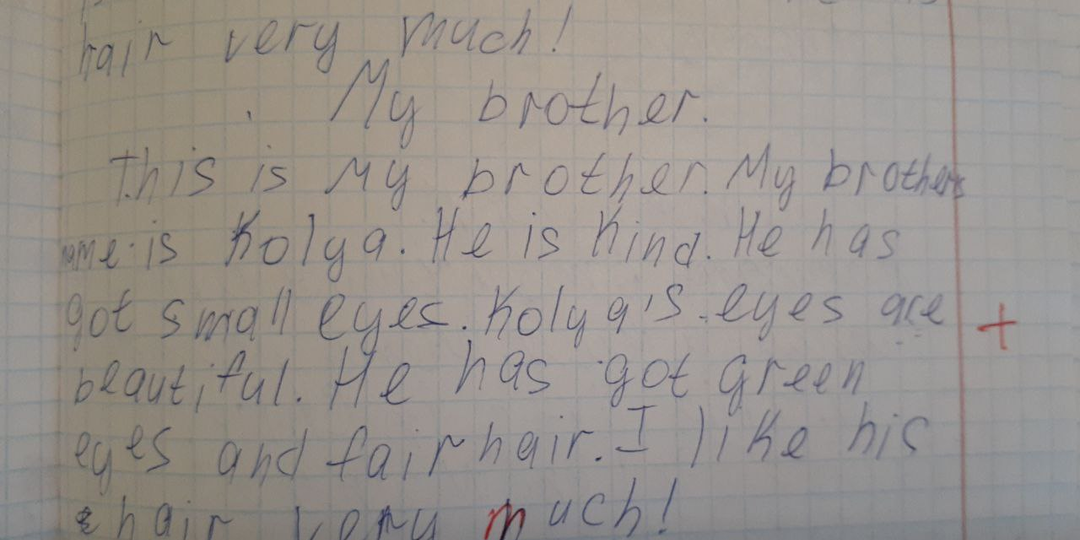 hair very much!
My brother.
This is my brother. My brothers
name is Kolya. He is kind. He has
got small eyes. Kolya's eyes are
beautiful. He has got green
eyes and fair hair. I like his
hair very much!